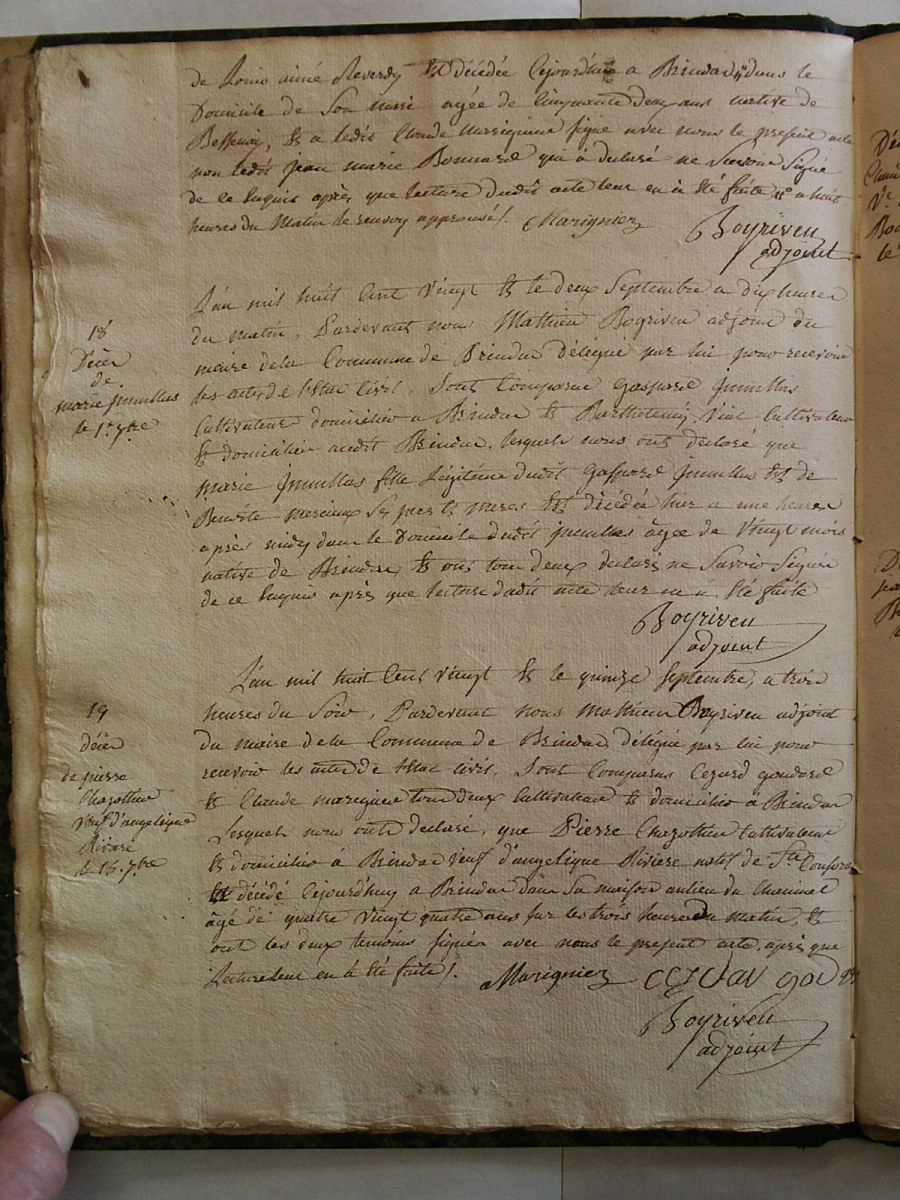 de Louis aimé Reverdy est décédée cejourd'hui a Brindas dans le
Domicile de Son mari agée de Cinquante deux ans native de
Bessenay, et a ledit Claude Marignier signé avec nous le present acte
non ledit Jean marie Bonnard qui à declaré ne Savoir Signé
de ce Enquis après que lecture dudit acte leur en à été faite, a huit
heures du Matin le renvoy approuvé /. Marignier
Boyriven
adjoint
18
Décès
de
marie
le 1er 7bre
L'an mil huit Cent Vingt et le deux Septembre a dix heures
du matin, Pardevant nous Mathieu Boyriven adjoint du
maire de la Commune de Brindas délégué par lui pour recevoir
les actes de l'état civil, Sont Comparus gaspard
Cultivateur domicilié a Brindas et Barthelemy Vial Cultivateur
et domicilié audit Brindas, lesquels nous ont declaré que
marie fille Légitime dudit gaspard et de
Benoîte Ses père et mere est décédée hier a une heure
après midy dans le Domicile dudit âgée de Vingt mois
native de Brindas et ont tous deux declaré ne Savoir Signer
de ce Enquis après que lecture dudit acte leur en a été faite
Boyriven
adjoint
19
décès
de pierre
Chazottier
veuf d'angelique
Riviere
le 15. 7bre
L'an mil huit Cent vingt et le quinze septembre, a trois
heures du Soir, Pardevant nous Mathieu Boyriven adjoint
du maire de la Commune de Brindas délégué par lui pour
recevoir les actes de l'état civil, Sont Comparus Cezard goudard
et Claude marignier tous deux Cultivateurs et domicilié à Brindas
Lesquels nous ont declaré, que Pierre Chazottier Cultivateur
et domicilié à Brindas veuf d'angelique Riviere natif de Ste Consorce
est décédé Cejourd'huy a Brindas dans Sa maison au lieu du
âgé de quatre Vingt quatre ans sur les trois heures du matin, et
ont les deux temoins signés avec nous le present acte, après que
Lecture leur en à été faite /. Marignier
Boyriven
adjoint